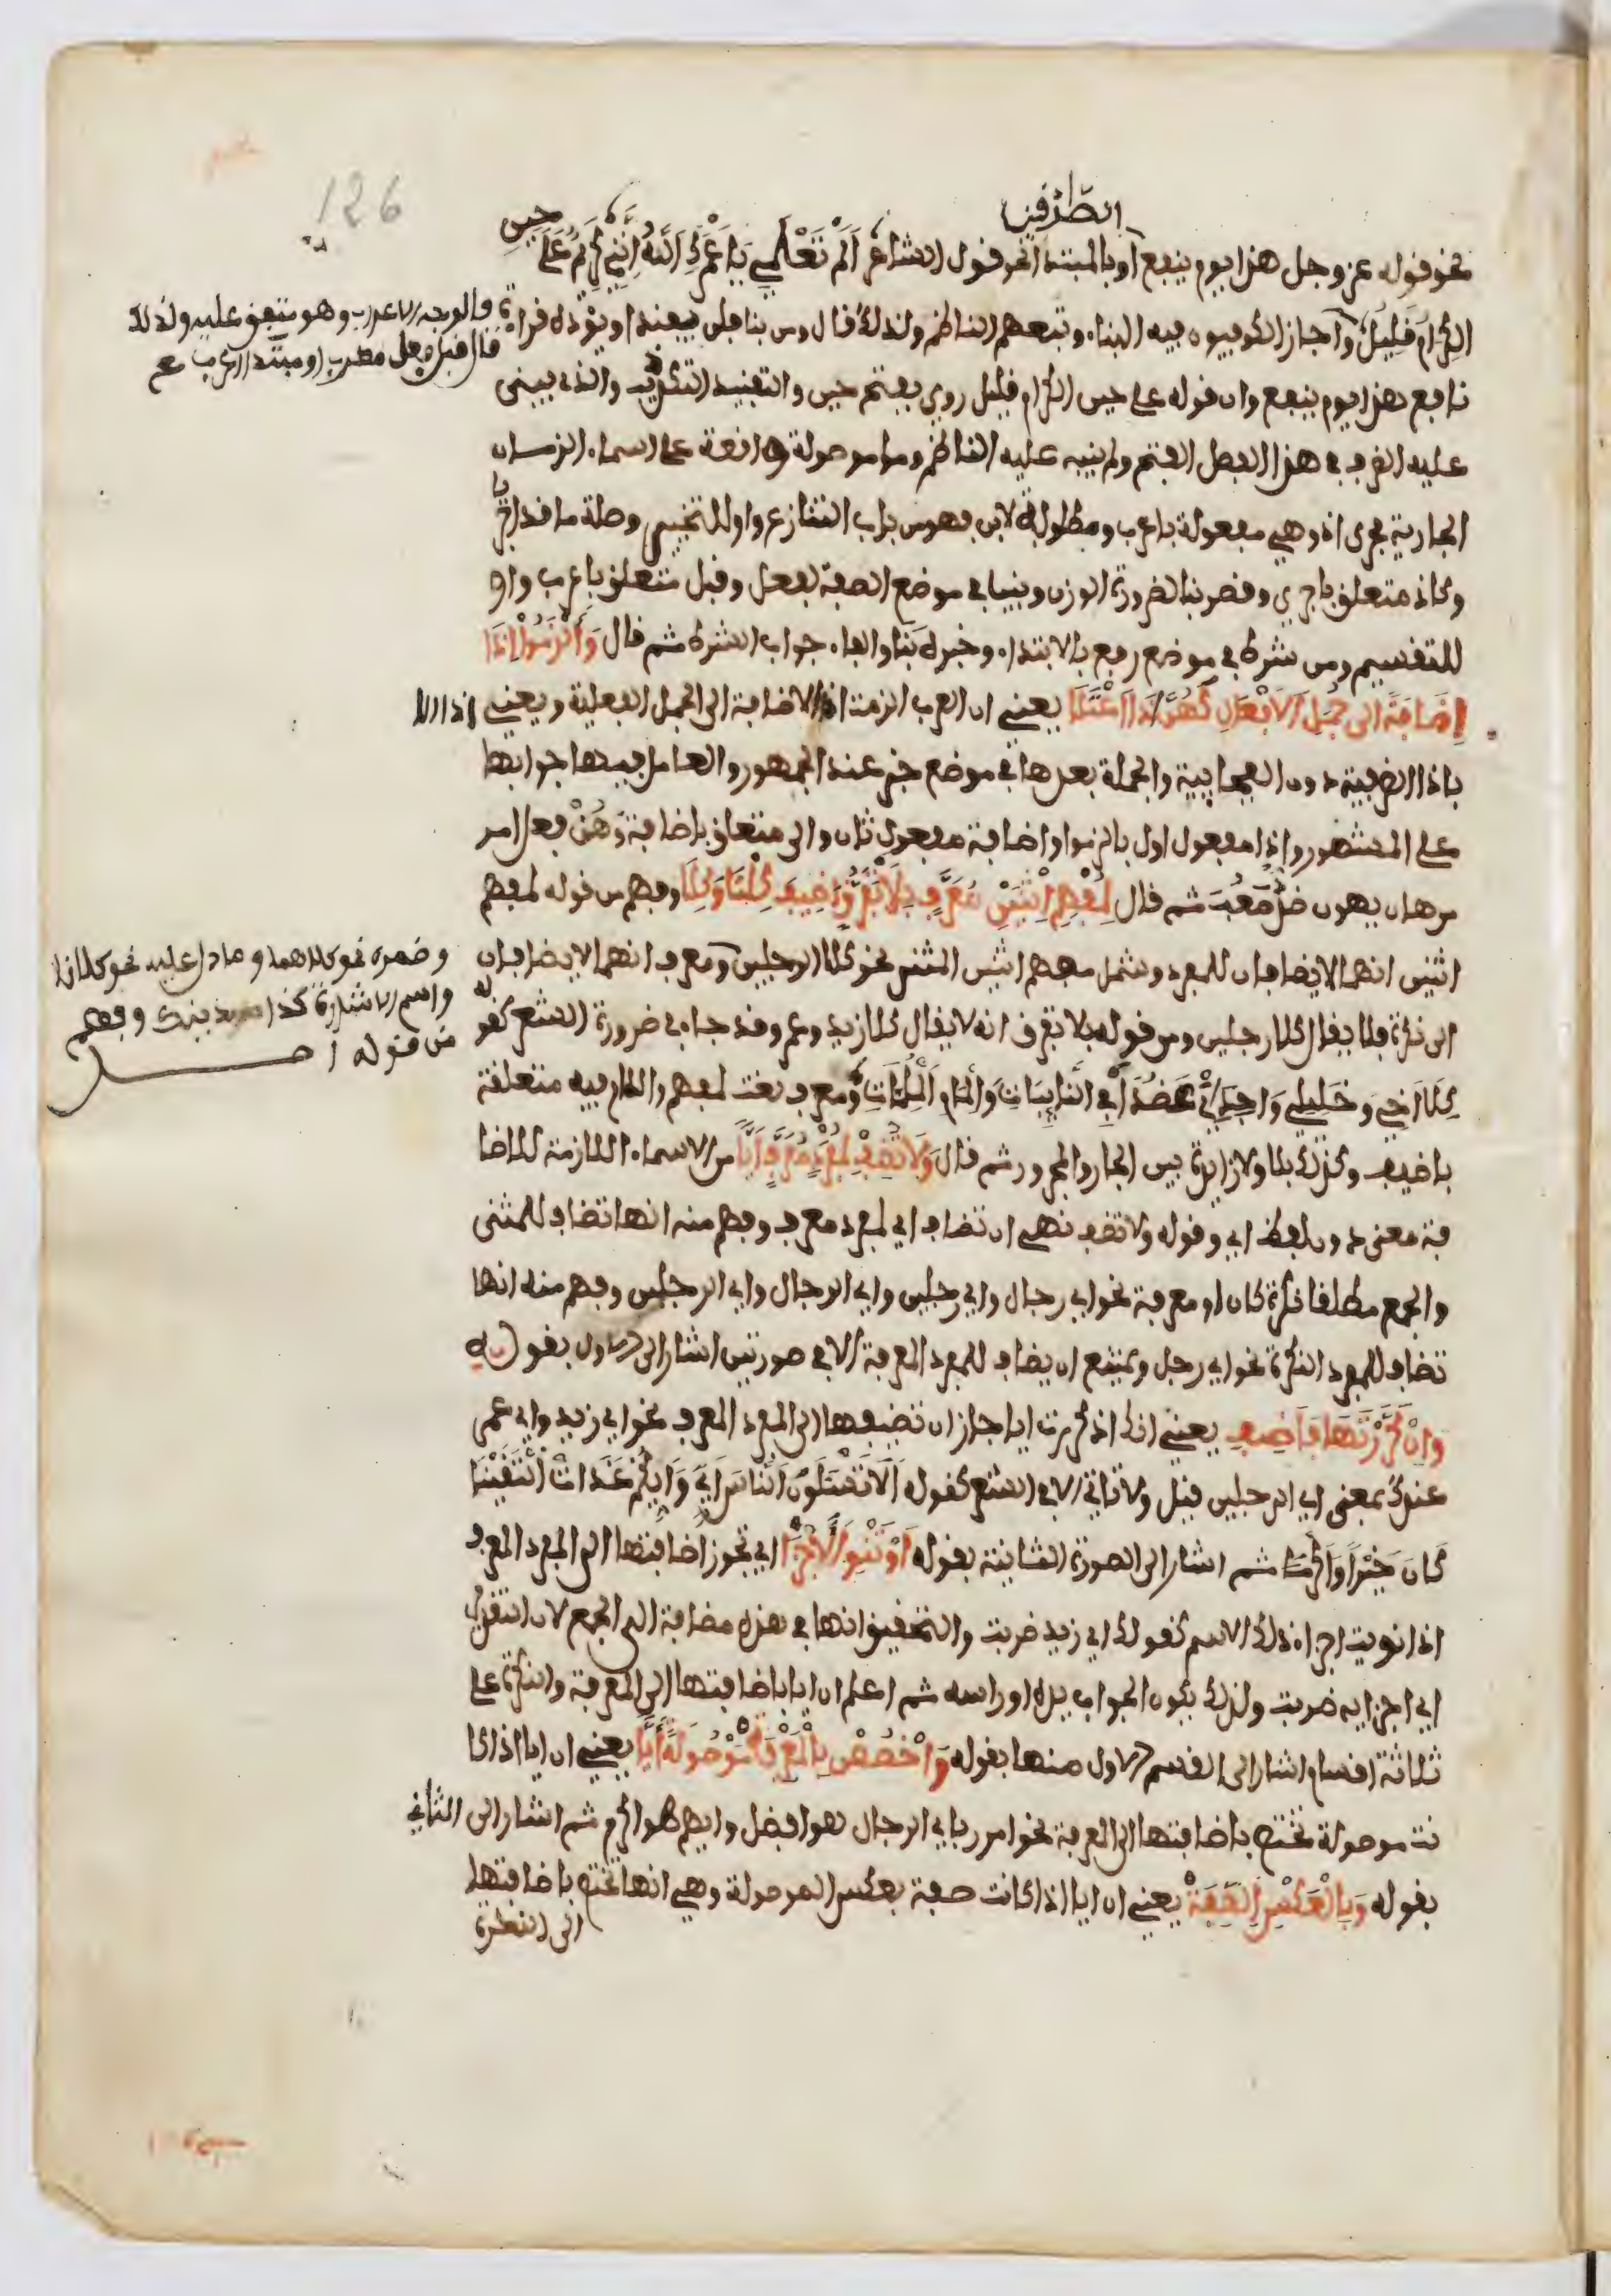 126
الطرفين
نحو قوله عز وجل هذا يوم ينفع او بالمبتدا نحو قول الشاعر اَلَمْ تَعْلَمِي يَا عَمْرَكِ اللَّهَ اِنَّنِي كَرِيمٌ عَلَى حِينِ
الكِرَامُ قَلِيلُ واجاز الكوفيون فيه البناء وتبعهم الناظم ولذلك قال ومن بنا فلن يفندا ويؤيده قراءة
فالوجه الاعراب وهو متفق عليه ولذلك
قال قبل فعل معرب او مبتدا اعرب
نافع هذا يوم ينفع وان قوله على حين الكرام قليل روي بفتح حين والتفنيد التكذيب والذي يبنى
عليه الظرف في هذا الفصل الفتح ولم ينبه عليه الناظم وما موصولة واقعة على اسماء الزمان
الجارية مجرى اذ وهي مفعولة باعرب ومطلوبة لابن فهو من باب التنازع واو للتخيير وصلة ما قد اجريا
وكاذ متعلق باجري وقصر بنا لضرورة الوزن وبنيا في موضع الصفة لفعل وقبل متعلق باعرب واو
للتقسيم ومن شرط في موضع رفع بالابتداء وخبره بنا والفاء جواب الشرط ثم قال وَأَلْزَمُوا إِذَا
إِضَافَةً إلى جُمَلِ الاَفْعَالِ كَهُنْ إِذَا اعْتَلَى يعني ان العرب الزمت اذا الاضافة الى الجمل الفعلية ويعني
باذا الظرفية دون الفجائية والجملة بعدها في موضع جر عند الجمهور والعامل فيها جوابها
على المشهور واذا مفعول اول بالزموا واضافة مفعول ثان والى متعلق باضافة وَهُنْ فعل امر
من هان يهون ضد صَعُبَ ثم قال لِمُفْهِمِ اثْنَيْنِ مُعَرَّفٍ بِلَا تَفَرُّقٍ اُضِيفَ كِلْتَا وَكِلَا وفهم من قوله لمفهم
اثنين انهما لا يضافان للمفرد وشمل مفهم اثنين المثنى نحو كلا الرجلين ومعرف انهما لا يضافان
وضميره نحو كلاهما وما دل عليه نحو كلانا
واسم الاشارة كذا
من قوله
الى نكرة فلا يقال كلا رجلين ومن قوله بلا تفرق انه لا يقال كلا زيد وعمرو وقد جاء في ضرورة الشعر كقوله
كِلَا اَخِي وخَلِيلِي وَاجِدِي عَضُدًا فِي النَّائِبَاتِ وَإِلْمَامِ الْمُلِمَّاتِ ومعرف نعت لمفهم واللام فيه متعلقة
باضيف وكذلك بلا ولا زائدة بين الجار والمجرور ثم قال وَلَا تُضِفْ لِمُفْرَدٍ مُعَرَّفٍ أَيًّا من الاسماء اللازمة للاضا
فة معنى دون لفظ اي وقوله ولا تضف نهي ان تضاف اي لمفرد معرف وفهم منه انها تضاف للمثنى
والجمع مطلقا نكرة كان او معرفة نحو اي رجال واي رجلين واي الرجال واي الرجلين وفهم منه انها
تضاف للمفرد النكرة نحو اي رجل ويمتنع ان يضاف للمفرد المعرفة الا في صورتين اشار الى الاول بقوله
وَإِنْ كَرَّرْتَهَا فَأَضِفِ يعني انك اذا كررت ايا جاز ان تضيفها الى المفرد المعرف نحو اي زيد واي عمرو
عندك بمعنى اي الرجلين قيل ولا تاتي الا في الشعر كقوله اَلَا تَسْئَلُونَ النَّاسَ اَيِّي وَاَيُّكُمْ غَدَاةَ الْتَقَيْنَا
كَانَ خَيْرًا وَاَكْرَمَا ثم اشار الى الصورة الثانية بقوله اَوْ تَنْوِ الاَجْزَا اي تجوز اضافتها الى المفرد المعرف
اذا نويت اجزاء ذلك الاسم كقولك اي زيد ضربت والتحقيق انها في هذه مضافة الى الجمع لان التقدير
اي اجزايه ضربت ولذلك يكون الجواب يده او راسه ثم اعلم ان ايا باضافتها الى المعرفة والنكرة على
ثلاثة اقسام اشار الى القسم الاول منها بقوله وَاخْصُصَنْ بِالْمَعْرِفَةْ مَوْصُولَةً أَيًّا يعني ان ايا اذا كا
نت موصولة تختص باضافتها الى المعرفة نحو امرر باي الرجال هو افضل وايهم هو اكرم ثم اشار الى الثاني
بقوله وَبِالْعَكْسِ الصِّفَةْ يعني ان ايا اذا كانت صفة بعكس الموصولة وهي انها تختص باضافتها
الى النكرة